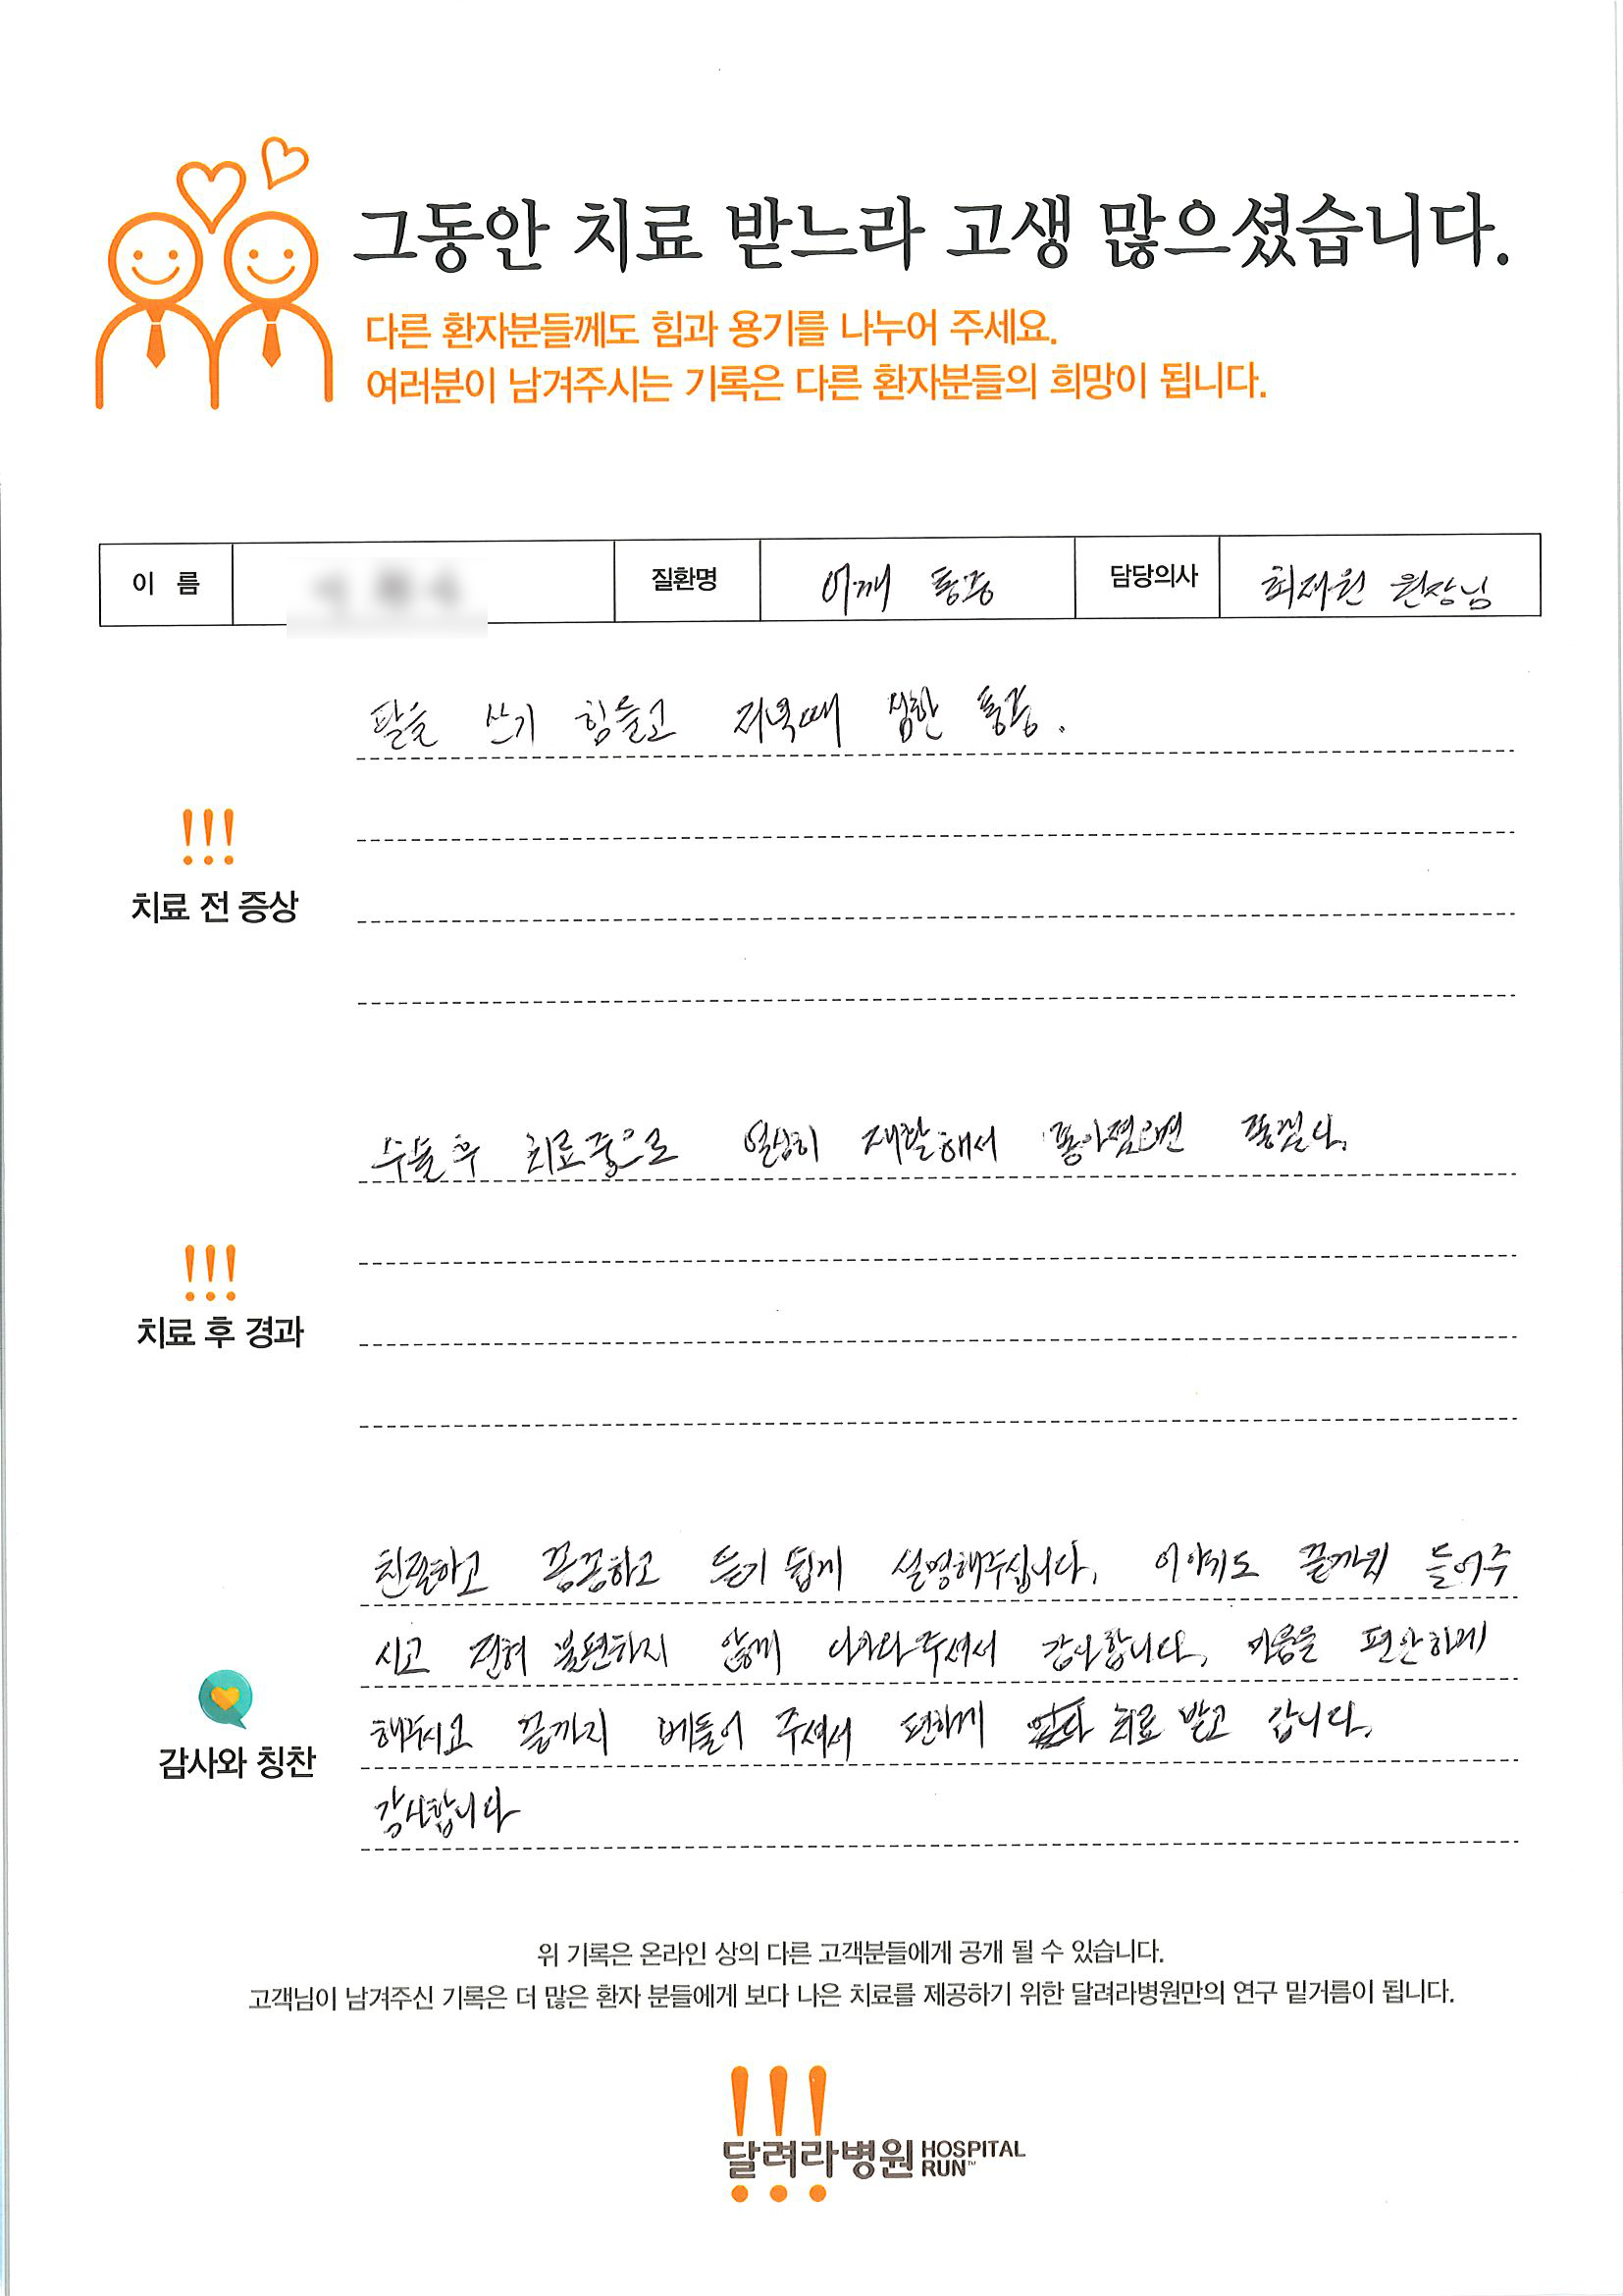 그동안 치료 받느라 고생 많으셨습니다.
다른 환자분들께도 힘과 용기를 나누어 주세요.
여러분이 남겨주시는 기록은 다른 환자분들의 희망이 됩니다.
이 름 질환명 어깨 통증 담당의사 최재원 원장님
팔을 쓰기 힘들고 저녁때 심한 통증.
!!!
치료 전 증상
수술 후 치료중으로 열심히 재활해서 좋아졌으면 좋겠다.
!!!
치료 후 경과
친절하고 꼼꼼하고 듣기 쉽게 설명해주십니다. 이야기도 끝까지 들어주
시고 전혀 불편하지 않게 다가와주셔서 감사합니다. 마음을 편안하게
해주시고 끝까지 주셔서 편하게 치료 받고 갑니다.
감사와 칭찬
감사합니다
위 기록은 온라인 상의 다른 고객분들에게 공개 될 수 있습니다.
고객님이 남겨주신 기록은 더 많은 환자 분들에게 보다 나은 치료를 제공하기 위한 달려라병원만의 연구 밑거름이 됩니다.
달려라병원 HOSPITAL RUN™